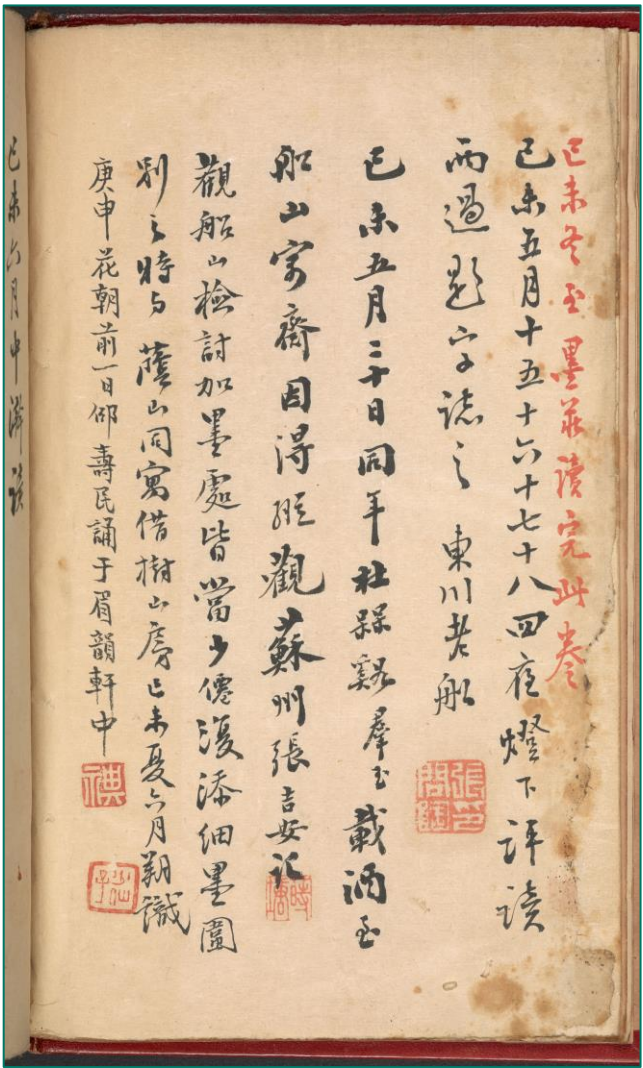 己未冬至墨莊讀完此卷
己未五月十五十六十七十八四夜燈下評讀
兩過題字誌之 東川老船
己未五月二十日同年杜 谿羣玉載酒至
船山寓齋因得縱觀蘇州張吉安記
觀船山檢討加墨處皆當少僊復添細墨圍
別之時与蔭山同寓借樹山房己未夏六月朔識
庚申花朝前一日邵壽民誦于眉韻軒中
張
問陶
己未六月中澣讀